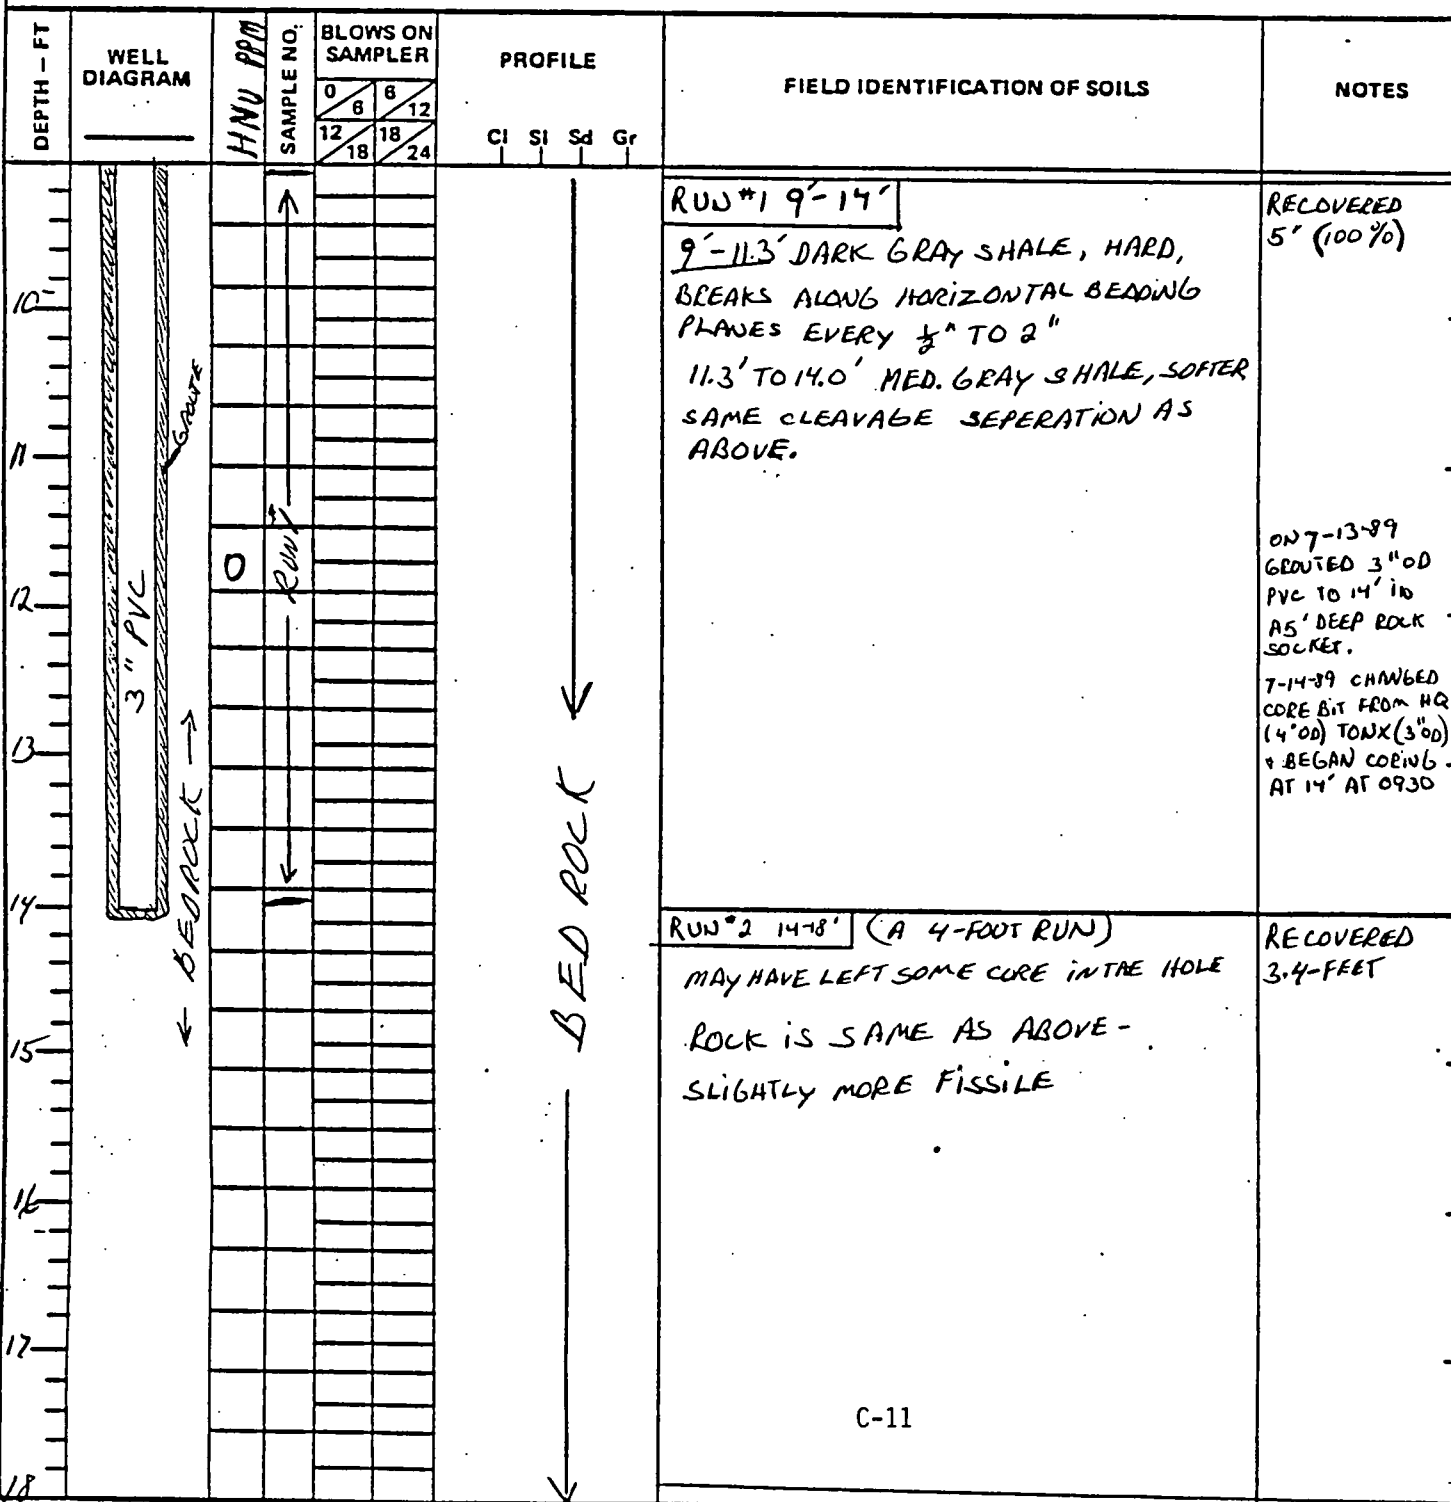 DEPTH – FT
WELL
DIAGRAM
HNU PPM
SAMPLE NO.
BLOWS ON
SAMPLER
0 6 6 12
12 18 18 24
PROFILE
Cl Sl Sd Gr
FIELD IDENTIFICATION OF SOILS
NOTES
RUN #1 9'-14'
9'-11.3' DARK GRAY SHALE, HARD,
BREAKS ALONG HORIZONTAL BEDDING
PLANES EVERY ½" TO 2"
11.3' TO 14.0' MED. GRAY SHALE, SOFTER
SAME CLEAVAGE SEPERATION AS
ABOVE.
RECOVERED
5' (100%)
ON 7-13-89
GROUTED 3" OD
PVC TO 14' IN
A 5' DEEP ROCK
SOCKET.
7-14-89 CHANGED
CORE BIT FROM HQ
(4" OD) TO NX (3" OD)
& BEGAN CORING
AT 14' AT 0930
10
11
12
13
14
15
16
17
18
GROUTE
3" PVC
← BEDROCK →
0
RUN #1
BED ROCK
RUN #2 14-18' (A 4-FOOT RUN)
MAY HAVE LEFT SOME CORE IN THE HOLE
ROCK IS SAME AS ABOVE -
SLIGHTLY MORE FISSILE
RECOVERED
3.4-FEET
C-11